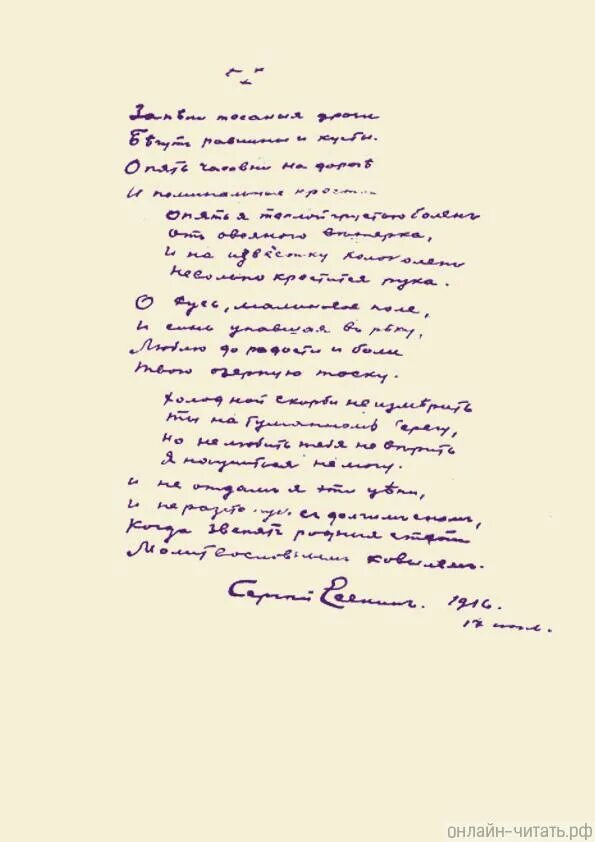 Запели тесаныя дроги
Бѣгутъ равнины и кусты.
Опять часовни на дорогѣ
И поминальные кресты
Опять я теплой грустью боленъ
Отъ овсяного вѣтерка,
И на извѣстку колоколенъ
Невольно крестится рука.
О Русь, малиновое поле,
И синь упавшая въ рѣку,
Люблю до радости и боли
Твою озерную тоску.
Холодной скорби не измѣрить
Ты на туманномъ берегу,
Но не любить тебя не вѣрить
Я научиться не могу.
И не отдамъ я эти цѣпи,
И не разстанусь съ долгимъ сномъ,
Когда звенятъ родныя степи
Молитвословнымъ ковылемъ.
Сергѣй Есенинъ. 1916.
17 июл.
онлайн-читать.рф